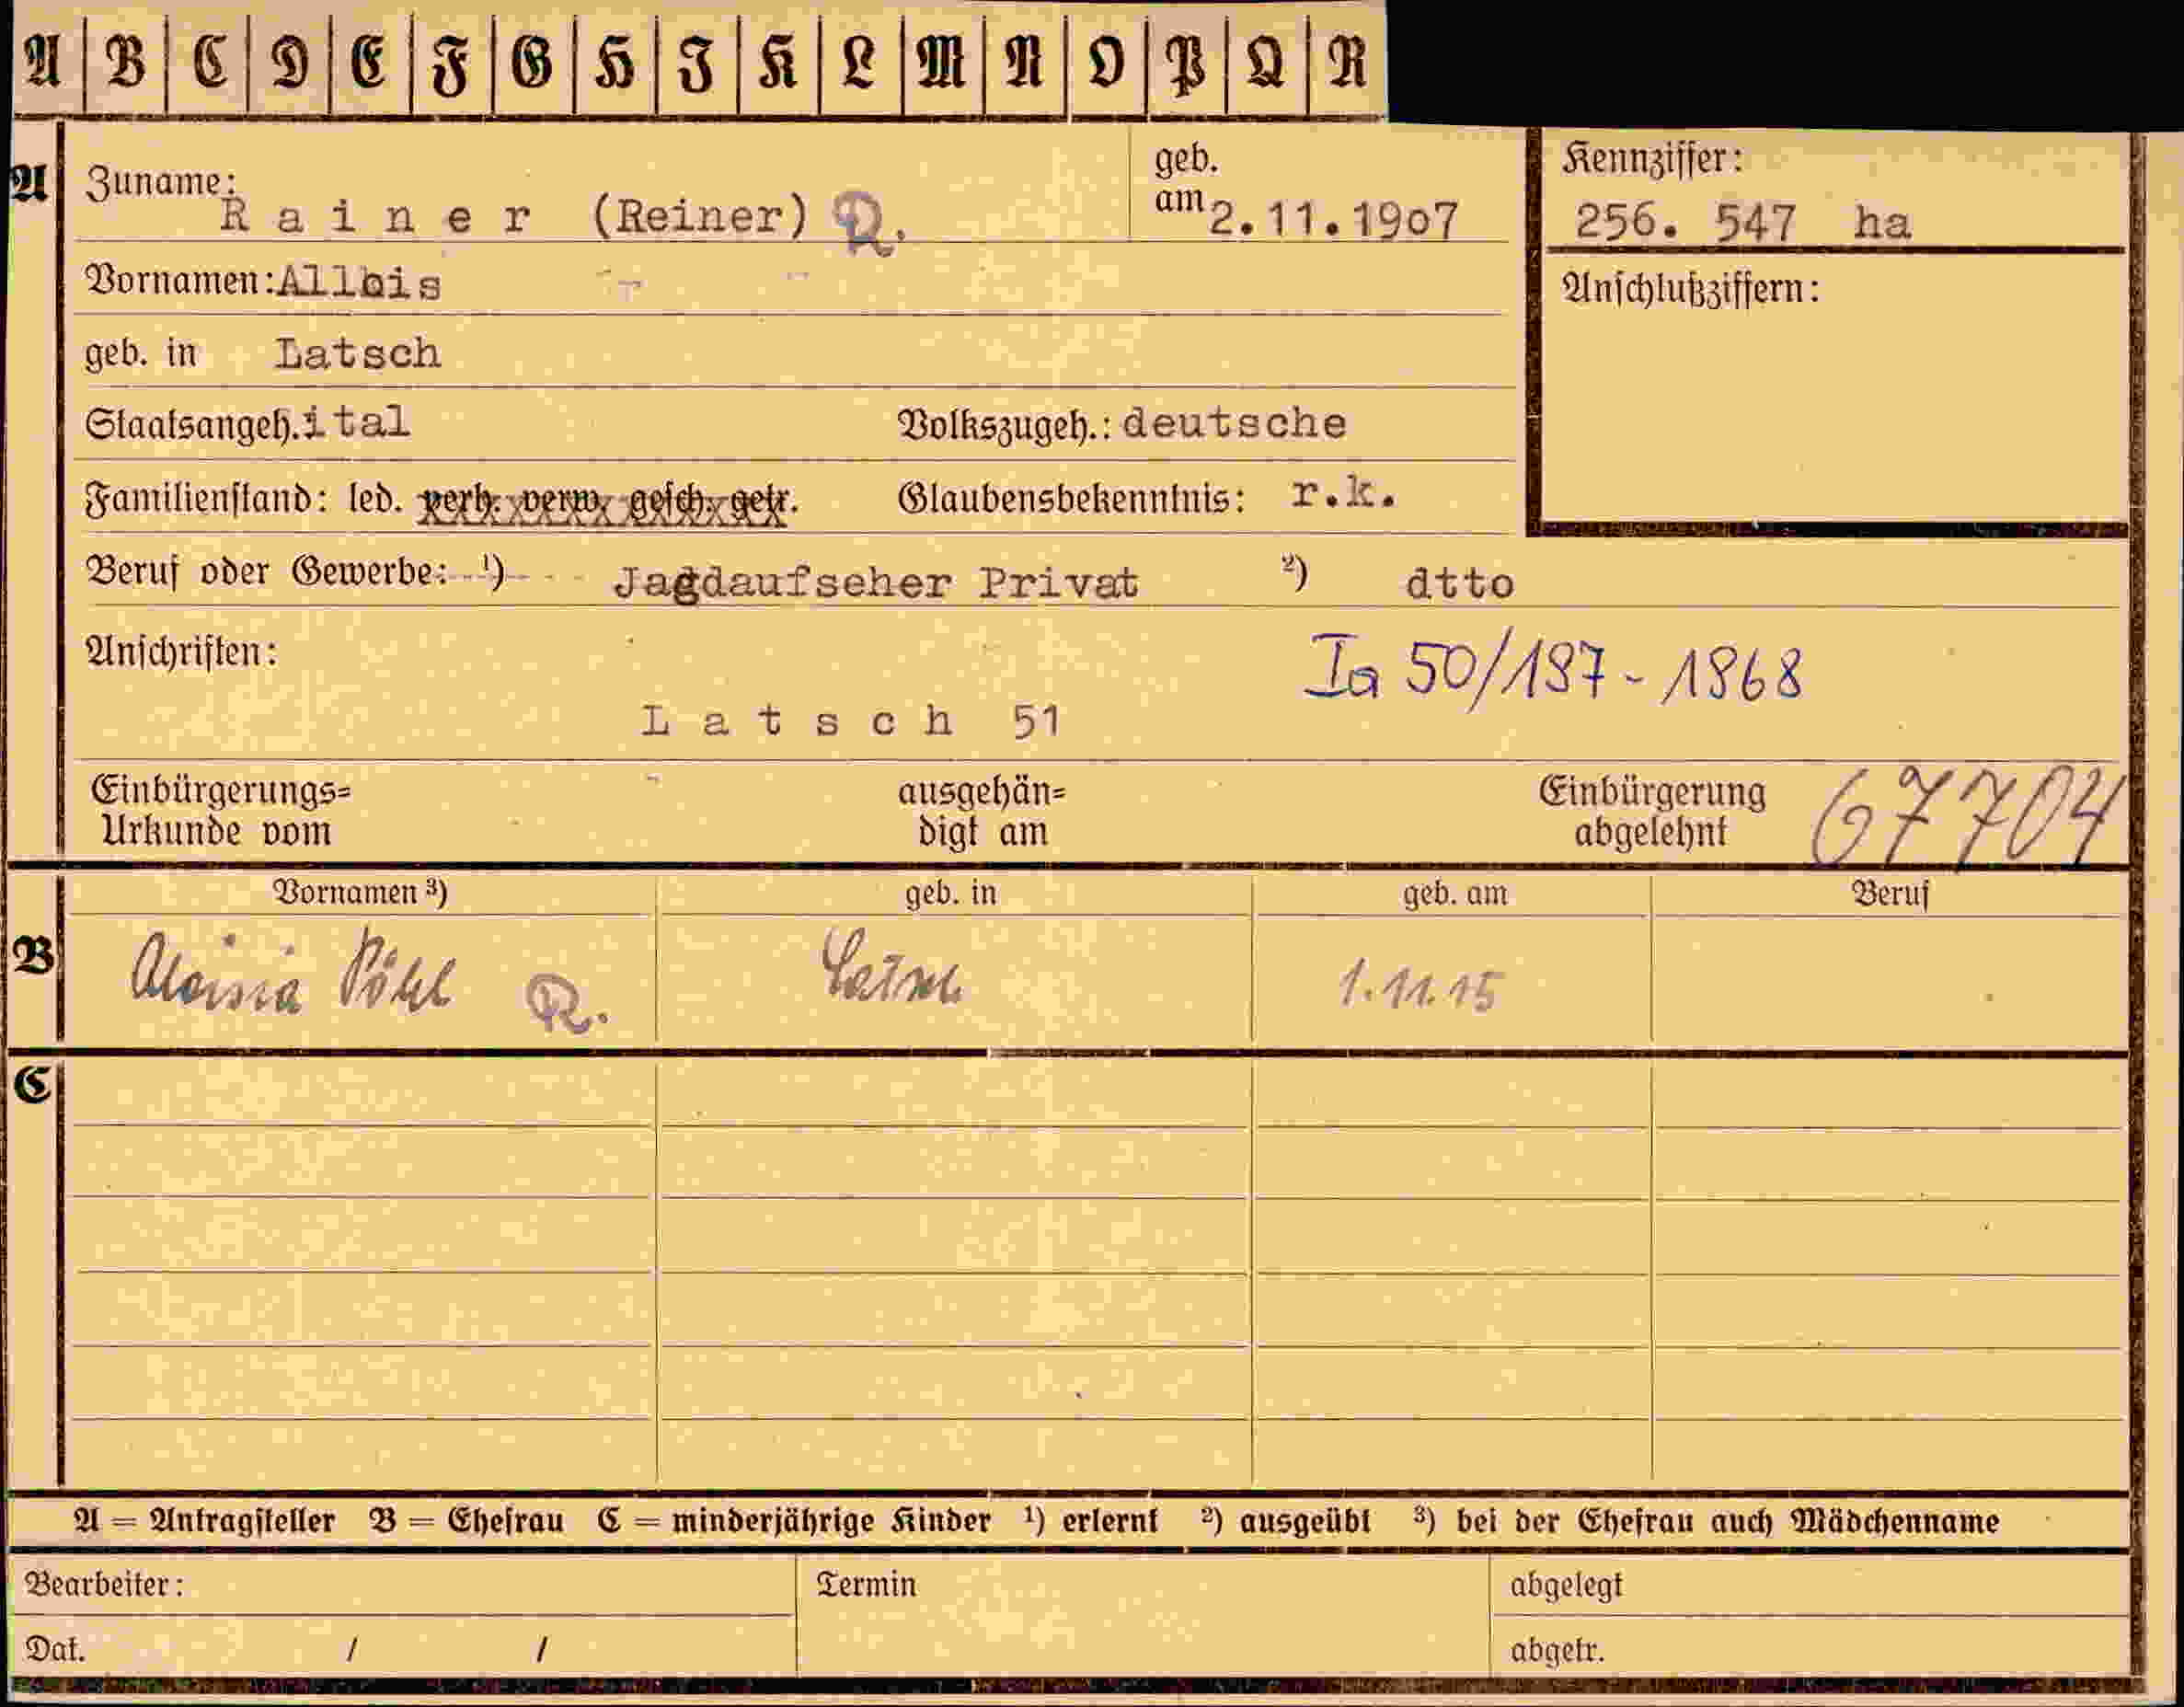 A B C D E F G H I K L M N O P Q R
A
Zuname: Rainer (Reiner) R.
geb. am 2.11.1907
Kennziffer:
256. 547 ha
Vornamen: Allois
Anschlußziffern:
geb. in Latsch
Staatsangeh. ital Volkszugeh.: deutsche
Familienstand: led. verh. verw. gesch. getr. Glaubensbekenntnis: r.k.
Beruf oder Gewerbe: ¹) Jagdaufseher Privat ²) dtto
Anschriften:
Ia 50/197-1968
Latsch 51
Einbürgerungs=
Urkunde vom
ausgehän=
digt am
Einbürgerung
abgelehnt
67704
Vornamen ³) geb. in geb. am Beruf
B Aloisia Pöhl R. Latsch 1.11.15
C
A = Antragsteller B = Ehefrau C = minderjährige Kinder ¹) erlernt ²) ausgeübt ³) bei der Ehefrau auch Mädchenname
Bearbeiter: Termin abgelegt
Dat. / / abgetr.